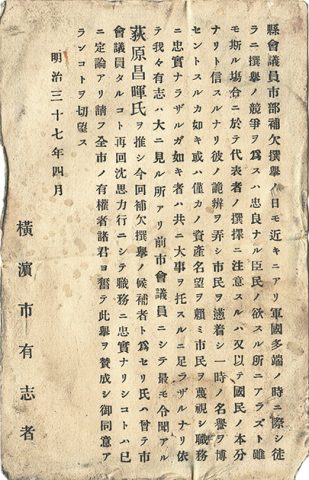 縣會議員市部補欠撰擧ノ日モ近キニアリ軍國多端ノ時ニ際シ徒
ラニ撰擧ノ競爭ヲ爲スハ忠良ナル臣民ノ欲スル所ニアラズト雖
モ斯ル塲合ニ於テ代表者ノ撰擇ニ注意スルハ又以テ國民ノ本分
ナリト信スルナリ彼ノ詭辯ヲ弄シ市民ヲ瞞着シ一時ノ名譽ヲ博
セントスルカ如キ或ハ僅カノ資産名望ヲ頼ミ市民ヲ蔑視シ職務
ニ忠實ナラザルガ如キ者ハ共ニ大事ヲ托スルニ足ラザルナリ依
テ我々有志ハ大ニ見ル所アリ前市會議員ニシテ最モ令聞アル
荻原昌暉氏ヲ推シ今回補欠撰擧ノ候補者ト爲セリ氏ハ曾テ市
會議員タルコト再回沈思力行ニシテ職務ニ忠實ナリシコトハ已
ニ定論アリ請フ全市ノ有權者諸君ヨ奮テ此擧ヲ賛成シ御同意ア
ランコトヲ切望ス
明治三十七年四月
橫濱市有志者